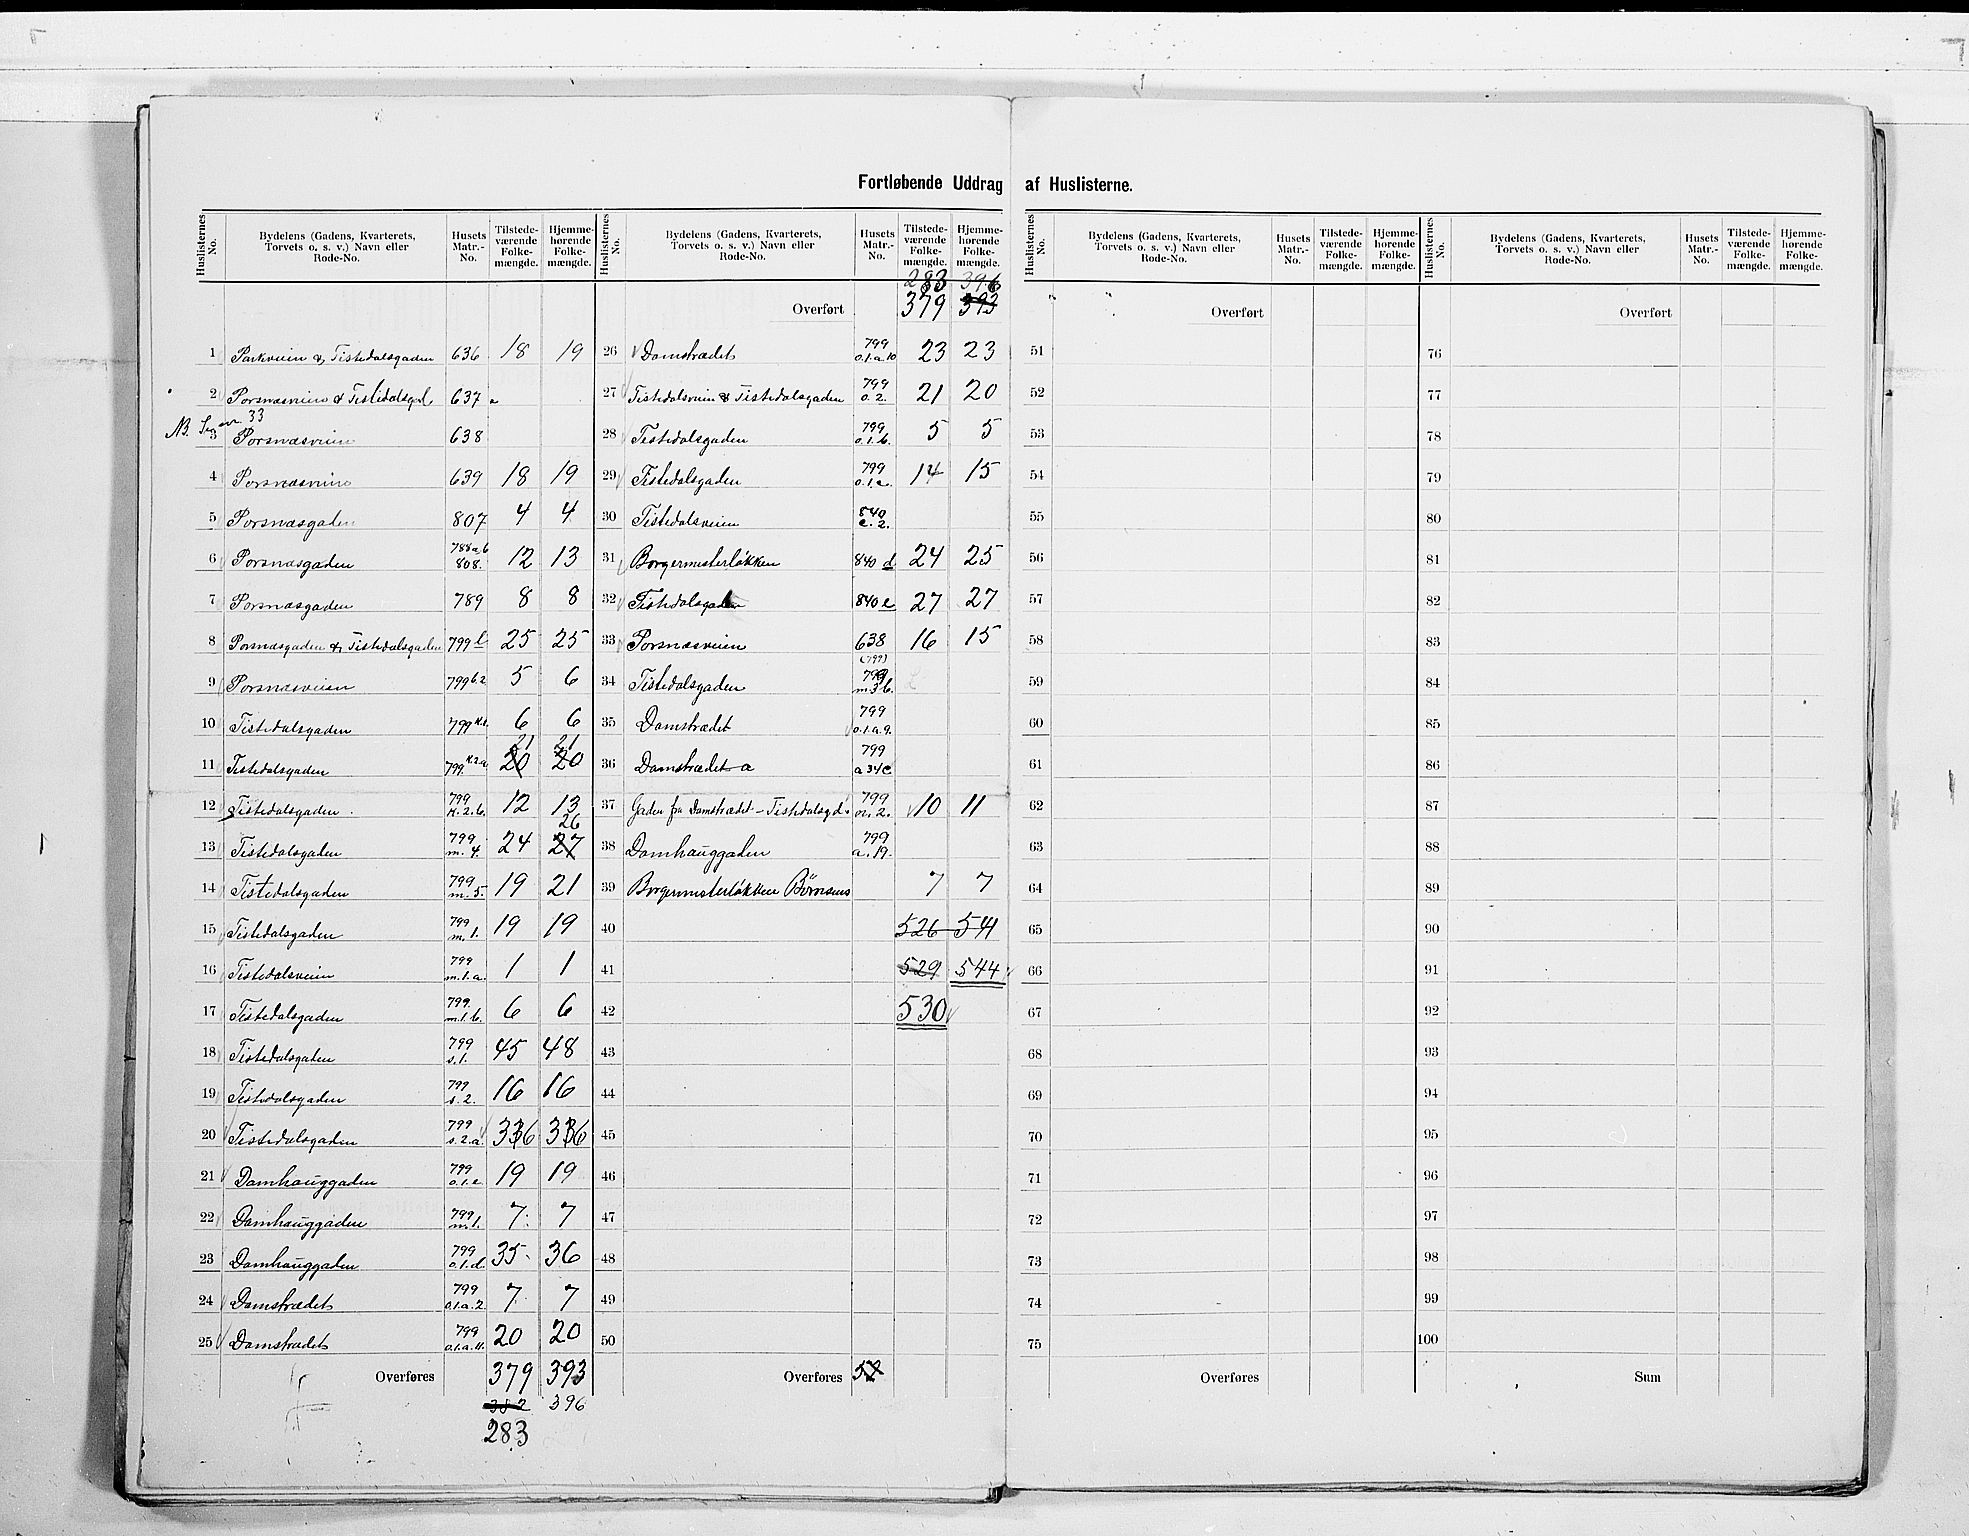 Fortløbende Uddrag af Huslisterne.
Huslisternes No. | Bydelens (Gadens, Kvarterets, Torvets o. s. v.) Navn eller Rode-No. | Husets Matr.-No. | Tilstede-værende Folke-mængde. | Hjemme-hørende Folke-mængde.
1 Parkveien & Tistedalsgaden 636 18 19
2 Porsnæsveien & Tistedalsgd. 637
NB. Se nr. 33
3 Porsnæsveien 638
4 Porsnæsveien 639 18 19
5 Porsnæsgaden 807 4 4
6 Porsnæsgaden 788 a, b 808. 12 13
7 Porsnæsgaden 789 8 8
8 Porsnæsgaden & Tistedalsgaden 799 l 25 25
9 Porsnæsveien 799 b.2 5 6
10 Tistedalsgaden 799 K.1. 6 6
11 Tistedalsgaden 799. K.2.a. 20 21 20 21
12 Tistedalsgaden 799 K.2.b. 12 13
13 Tistedalsgaden 799 m. 4. 24 27 26
14 Tistedalsgaden 799 m. 5. 19 21
15 Tistedalsgaden 799 m. 1. 19 19
16 Tistedalsveien 799 m.1.a. 1 1
17 Tistedalsgaden 799. m.1.b. 6 6
18 Tistedalsgaden 799 s.1. 45 48
19 Tistedalsgaden 799 s.2. 16 16
20 Tistedalsgaden 799 s.2.a. 36 36
21 Damhauggaden 799 o.1.e 19 19
22 Damhauggaden 799 m.1. 7 7
23 Damhauggaden 799 o.1.d. 35 36
24 Damstrædet 799 o.1.a.2. 7 7
25 Damstrædet 799 o.1.a.11. 20 20
Overføres 379 393
382 396
283
Huslisternes No. | Bydelens (Gadens, Kvarterets, Torvets o. s. v.) Navn eller Rode-No. | Husets Matr.-No. | Tilstede-værende Folke-mængde. | Hjemme-hørende Folke-mængde.
283 396
Overført 379 393
26 Damstrædet 799 o.1.a.10 23 23
27 Tistedalsveien & Tistedalsgaden 799 o. 2. 21 20
28 Tistedalsgaden 799 o.1.b. 5 5
29 Tistedalsgaden 799 o.1.c. 14 15
30 Tistedalsveien 840 c. 2.
31 Borgermesterløkken 840 d 24 25
32 Tistedalsgaden 840 e 27 27
33 Porsnæsveien 638 16 15
(799)
34 Tistedalsgaden 799 m.3.b.
35 Damstrædet 799 o.1.a.9.
36 Damstrædet a 799 a 34 c
37 Gaden fra Damstrædet - Tistedalsgd. 799 2. 10 11
38 Damhauggaden 799 a.19.
39 Borgermesterløkken Børnsens 7 7
40 526 541
41 529 544
42 530
43
44
45
46
47
48
49
50
Overføres 52
Huslisternes No. | Bydelens (Gadens, Kvarterets, Torvets o. s. v.) Navn eller Rode-No. | Husets Matr.-No. | Tilstede-værende Folke-mængde. | Hjemme-hørende Folke-mængde.
Overført
51
52
53
54
55
56
57
58
59
60
61
62
63
64
65
66
67
68
69
70
71
72
73
74
75
Overføres
Huslisternes No. | Bydelens (Gadens, Kvarterets, Torvets o. s. v.) Navn eller Rode-No. | Husets Matr.-No. | Tilstede-værende Folke-mængde. | Hjemme-hørende Folke-mængde.
Overført
76
77
78
79
80
81
82
83
84
85
86
87
88
89
90
91
92
93
94
95
96
97
98
99
100
Sum